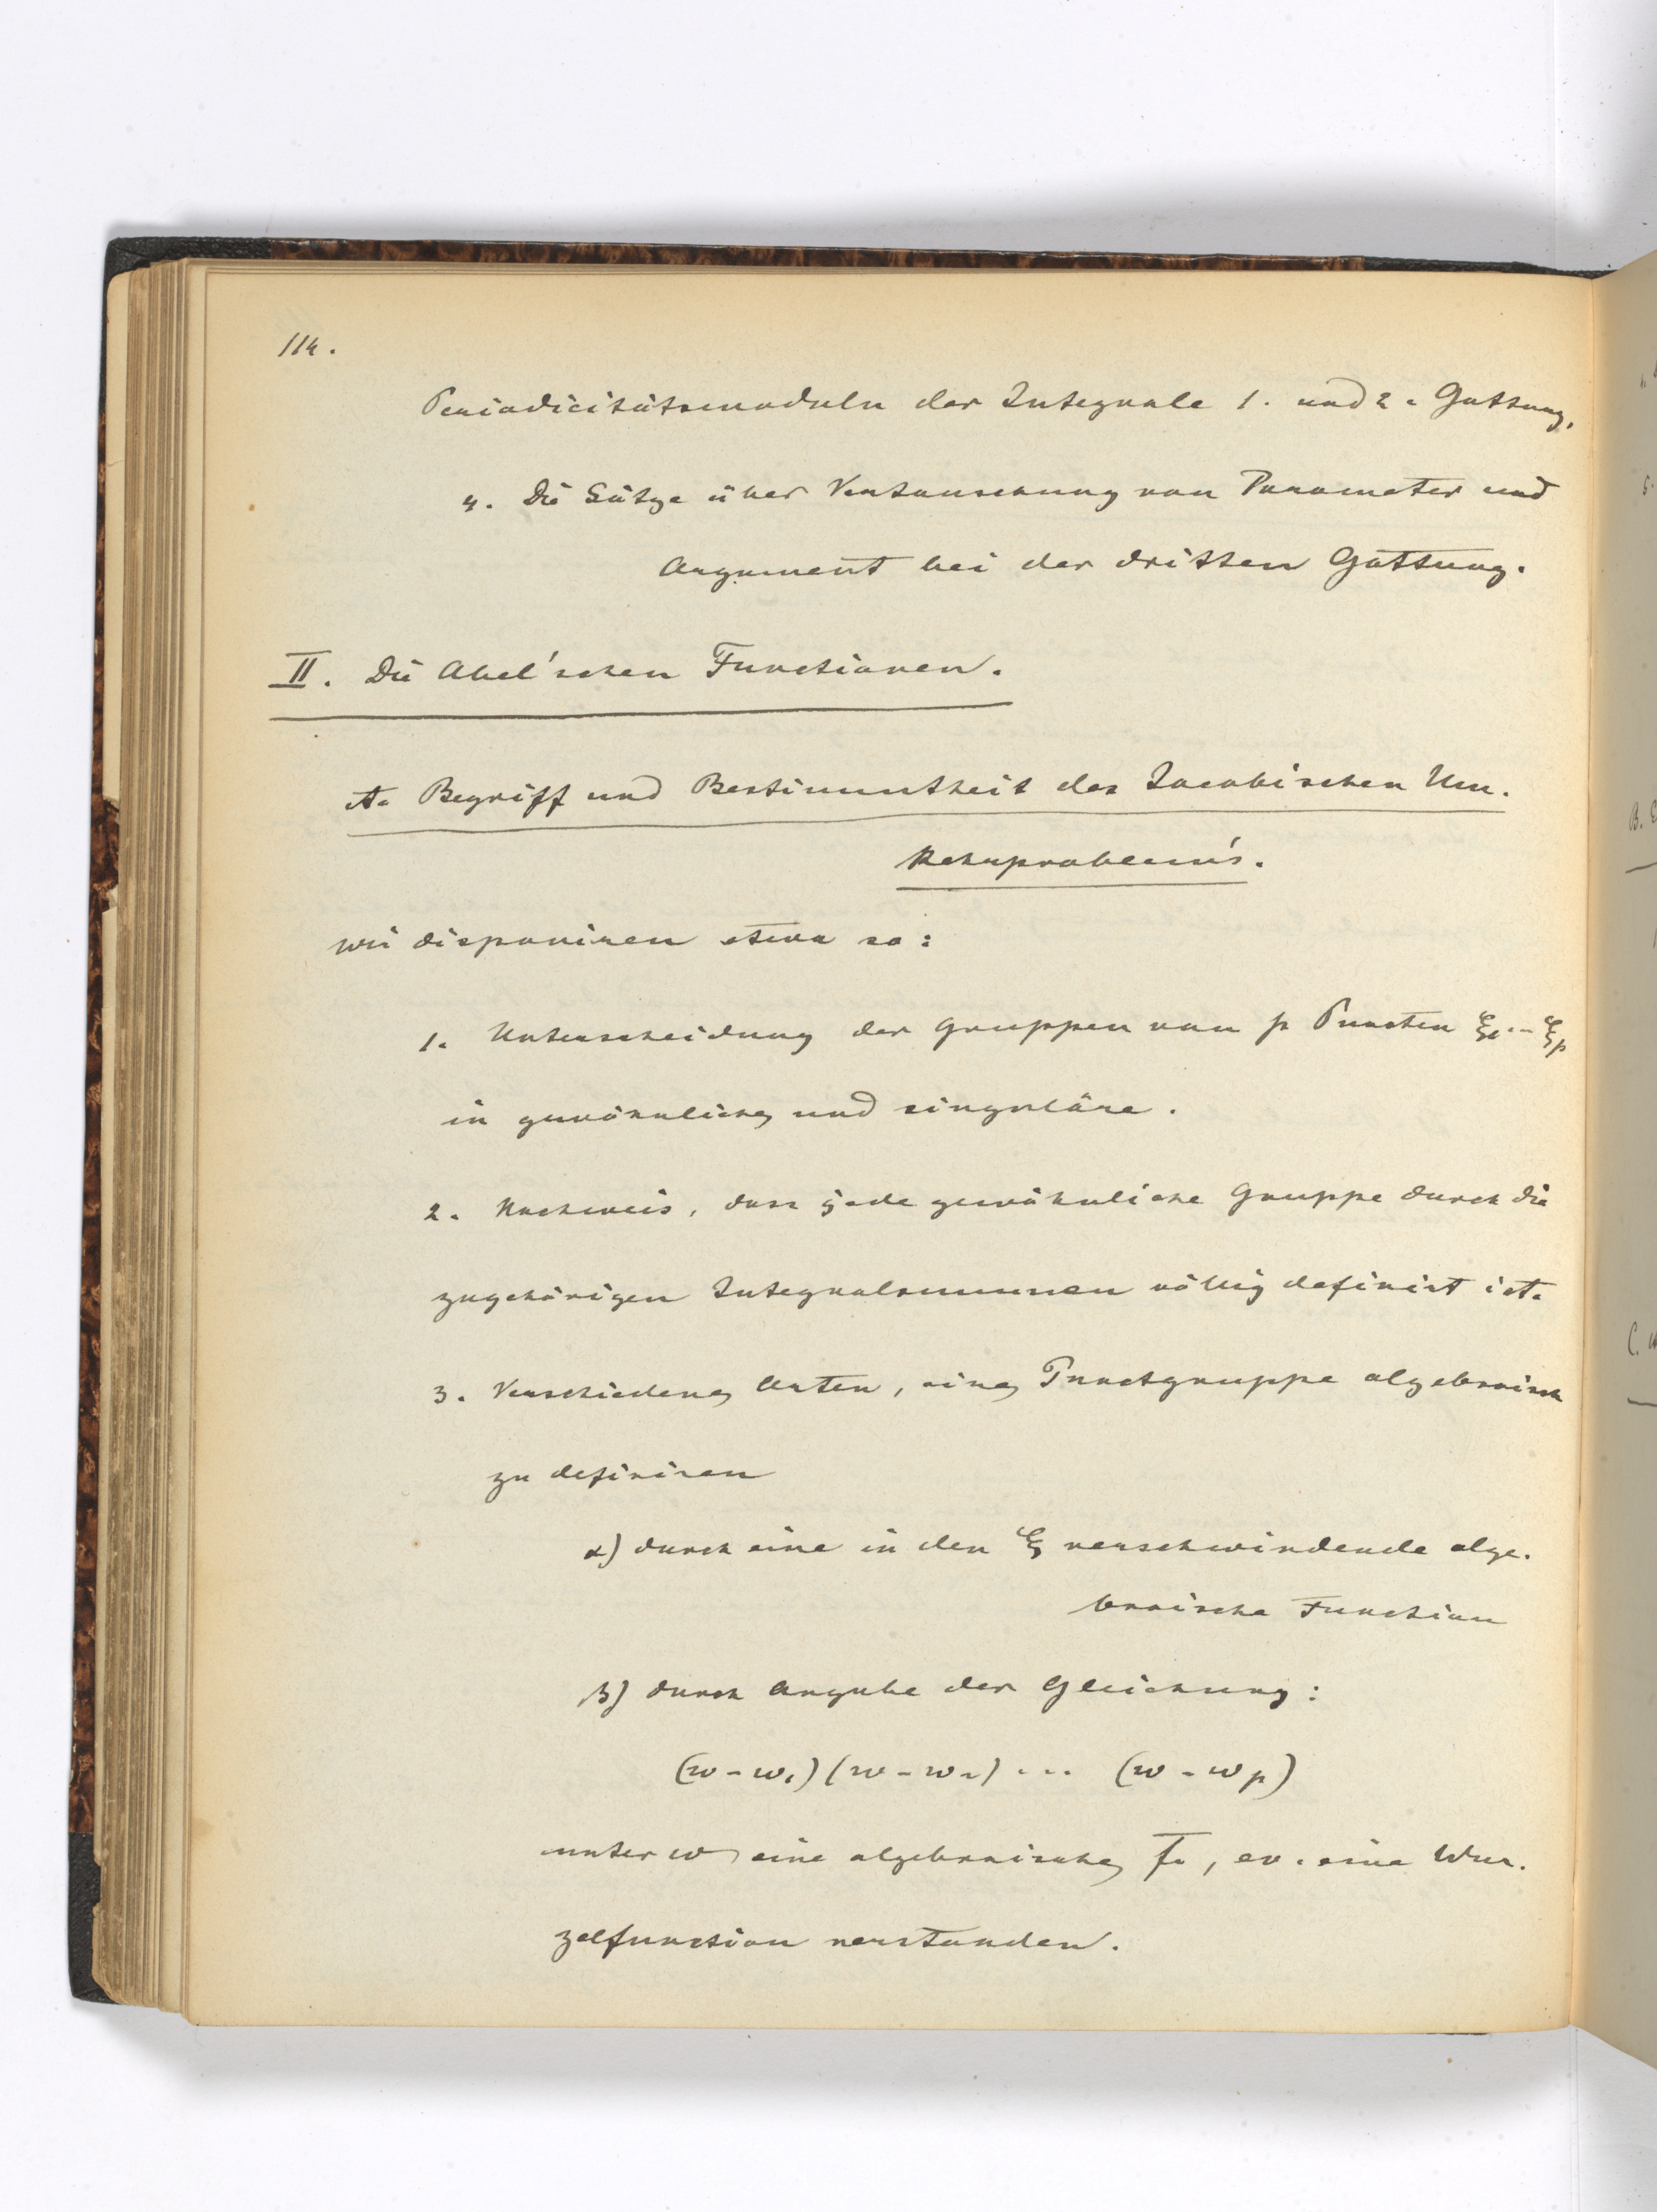 114.
Periodicitätsmoduln der Integrale 1. und 2. Gattung.
4. Die Sätze über Vertauschung von Parameter und
Argument bei der dritten Gattung.
II. Die Abel'schen Functionen.
A. Begriff und Bestimmtheit des Jacobischen Um-
kehrproblem's.
Wir disponiren etwa so:
1. Unterscheidung der Gruppen von p Puncten ξ₁...ξₚ
in gewöhnliche und singuläre.
2. Nachweis, dass jede gewöhnliche Gruppe durch die
zugehörigen Integralsummen völlig definirt ist.
3. Verschiedene Arten, eine Punctgruppe algebraisch
zu definiren
α) durch eine in den ξ verschwindende alge-
braische Function
β) durch Angabe der Gleichung:
(w-w₁)(w-w₂) ... (w-wₚ)
unter w eine algebraische f., ev. eine Wur-
zelfunction verstanden.